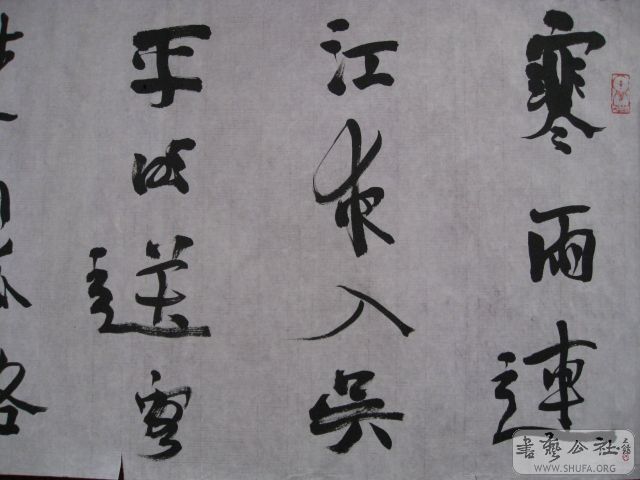 寒雨連
江夜入吳
平明送客
書藝公社
WWW.SHUFA.ORG